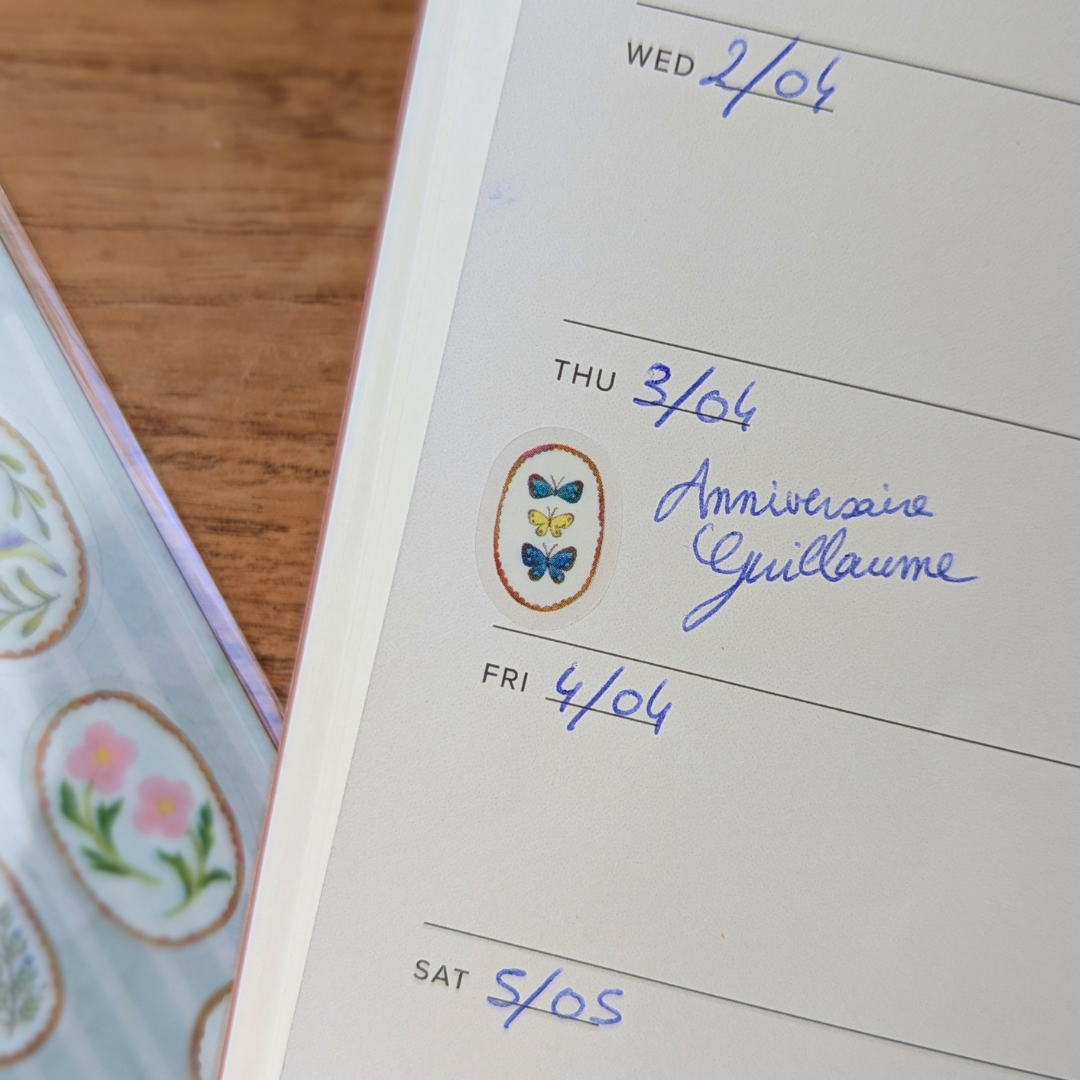 WED 2/04
THU 3/04
Anniversaire
Guillaume
FRI 4/04
SAT 5/05